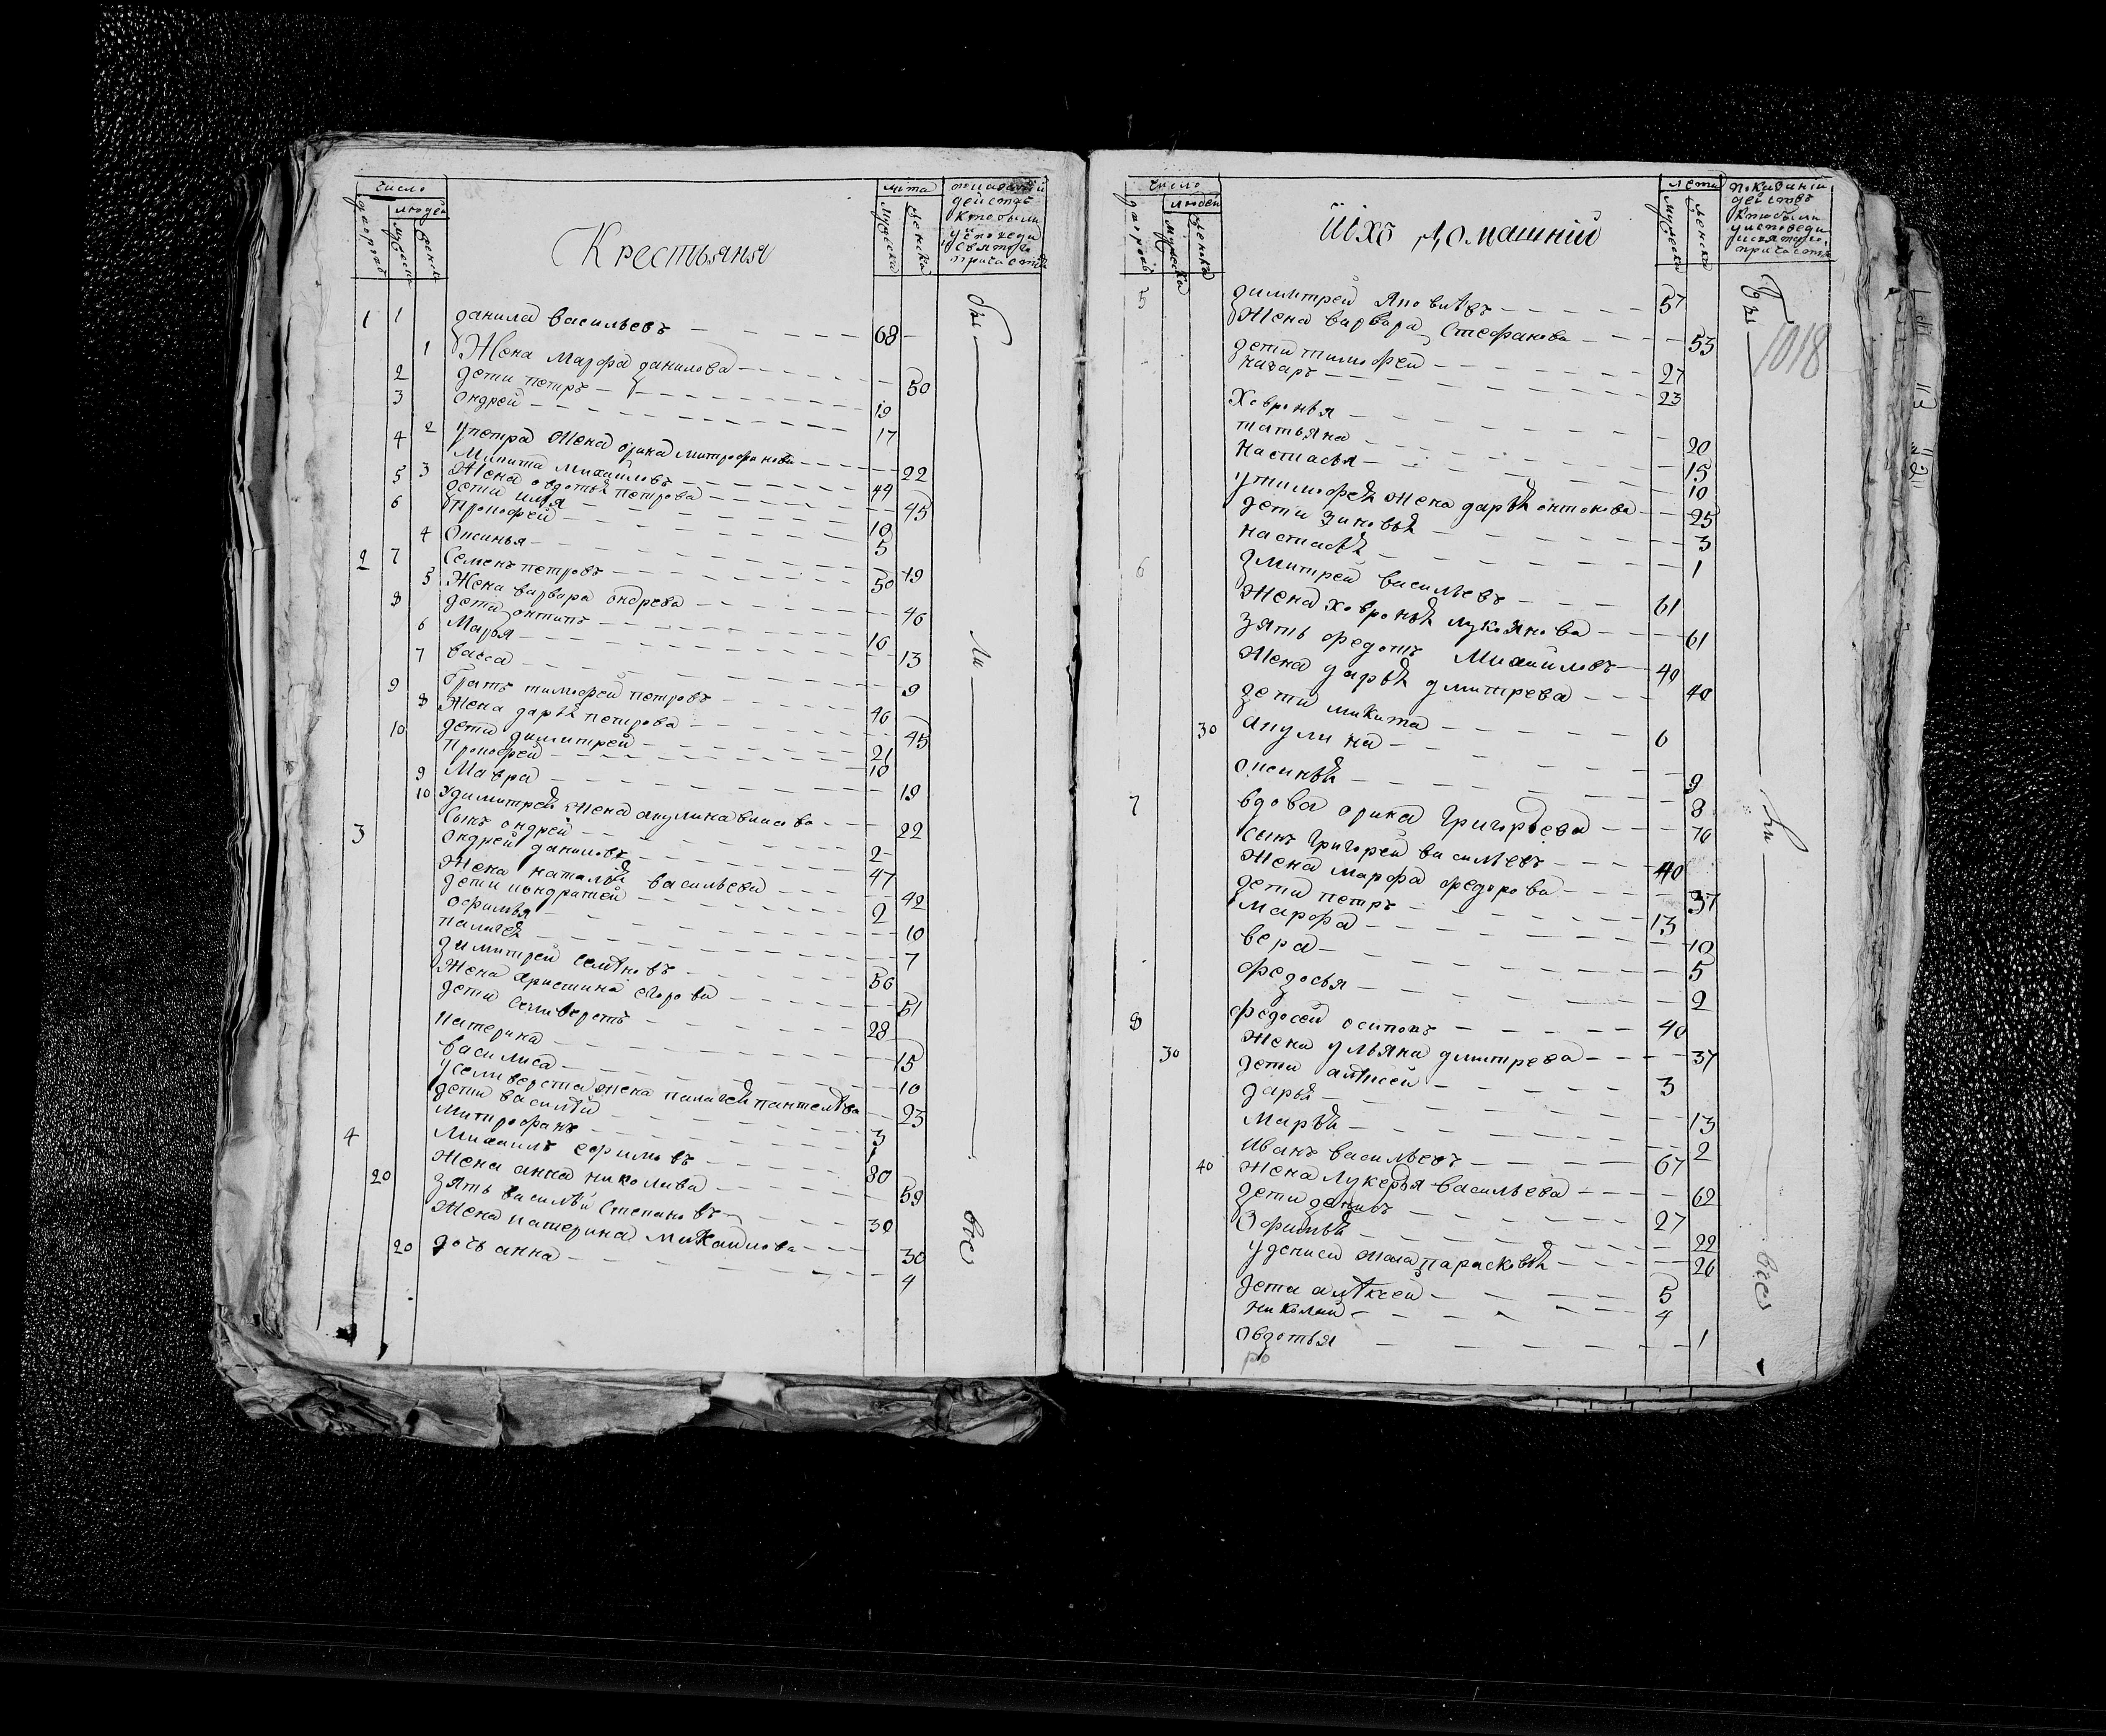 число
людей
дворовъ
мужеска
женска
Крестьяня
лѣта
мужеска
женска
показаній
действъ
кто были
у исповеди
и святого
причастія
1 1 данила васильевъ 68
1 Жена Марфа данилова 50
2 дети петръ 19
3 Ондрей 17
2 у петра Жена орина митрофанова 22
4 Микита Михайловъ 44
3 Жена овдотья петрова 45
5 дети илья 10
6 прокофей 5
4 Оксинья 19
2 7 Семенъ петровъ 50
5 Жена варвара ондрева 46
8 дети онтипъ 16
6 Марья 13
7 васса 9
9 братъ тимофей петровъ 46
8 Жена дарья петрова 45
10 дети димитрей 21
прокофей 10
9 Мавра 19
10 у димитрея Жена акулина власова 22
сынъ ондрей 2
3 ондрей даниловъ 47
Жена наталья васильева 42
дети кондратей 2
офимья 10
палагея 7
димитрей семѣновъ 56
Жена христина егорова 51
дети селиверстъ 28
катерина 15
василиса 10
у селиверста жена палагея пантелѣва 23
дети василѣй 3
митрофанъ 1
4 Михаилъ ефимовъ 80
Жена анна николаева 59
20 зять василѣй степановъ 30
Жена катерина михаилова 30
20 дочь анна 4
бы
ли
все
число
людей
дворовъ
мужеска
женска
ихъ домашнiй
лета
мужеска
женска
показанiи
действъ
кто были
у исповеди
и святого
причастия
1018
5 димитрей яковлѣвъ 57
Жена варвара Стефанова 53
дети тимофей 27
назаръ 23
Ховронья 20
татьяна 15
настасья 10
у тимофея жена дарья онтонова 25
дети зиновья 3
настасья 1
6 дмитрей васильевъ 61
Жена ховронья лукоянова 61
зять федотъ Михайловъ 40
Жена дарья дмитрева 40
дети микита 6
30 акулина 9
оксинья 8
7 вдова орина Григорьева 70
сынъ Григорей васильевъ 40
Жена марфа федорова 37
дети петръ 13
Марфа 10
вера 5
федосья 2
8 федосей осиповъ 40
30 Жена ульяна дмитрева 37
дети алѣксей 3
дарья 13
Марья 2
иванъ васильевъ 67
40 Жена Лукерья васильева 62
дети денисъ 27
Офимья 22
у дениса жена парасковья 26
дети алѣксей 5
николай 4
Овдотья 1
бы
ли
все